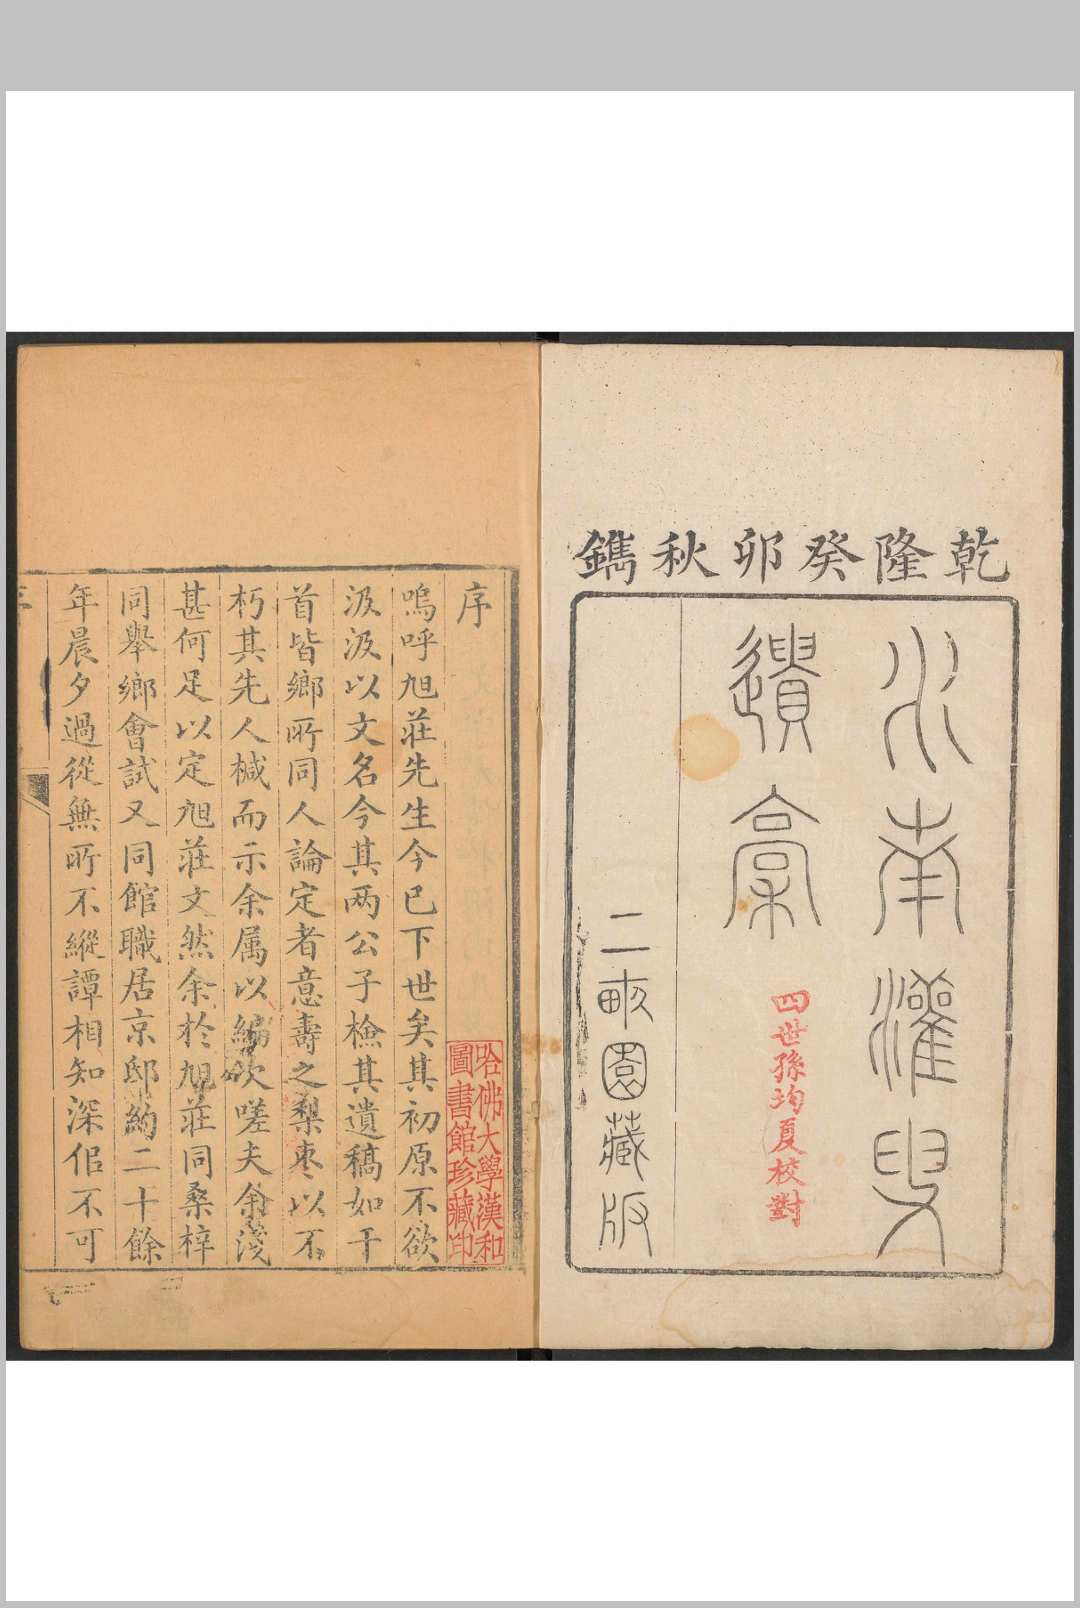 乾隆癸卯秋鐫
水南灌叟
遺稾
四世孫均夏校對
二畞園藏版
序
嗚呼旭莊先生今已下世矣其初原不欲
汲汲以文名今其两公子檢其遺稿如干
首皆鄉所同人論定者意壽之梨枣以不
朽其先人椷而示余属以編次嗟夫余淺
甚何足以定旭莊文然余於旭莊同桑梓
同舉鄉會試又同館職居京邸約二十餘
年晨夕過從無所不縱譚相知深但不可
哈佛大學漢和
圖書館珍藏印